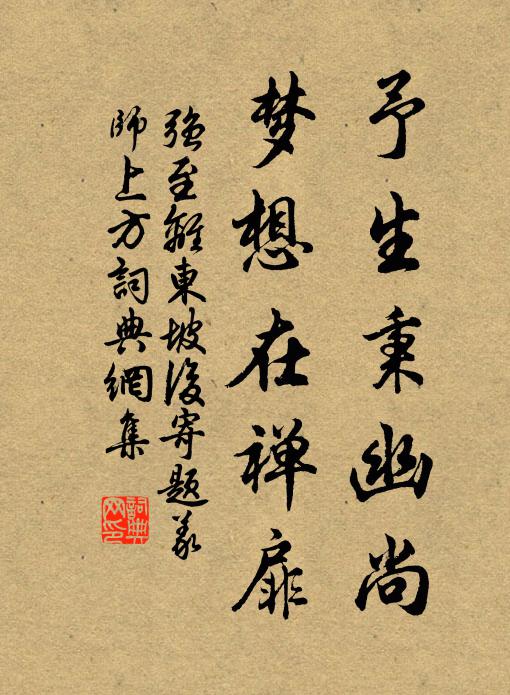 予生秉幽尚
梦想在禅扉
强至離東坡後寄題義
師上方詞典網集
詞典
网印